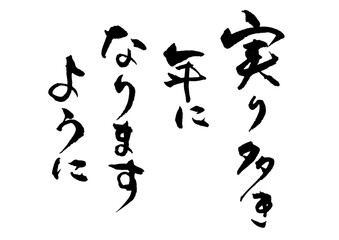 実り多き
年に
なります
ように